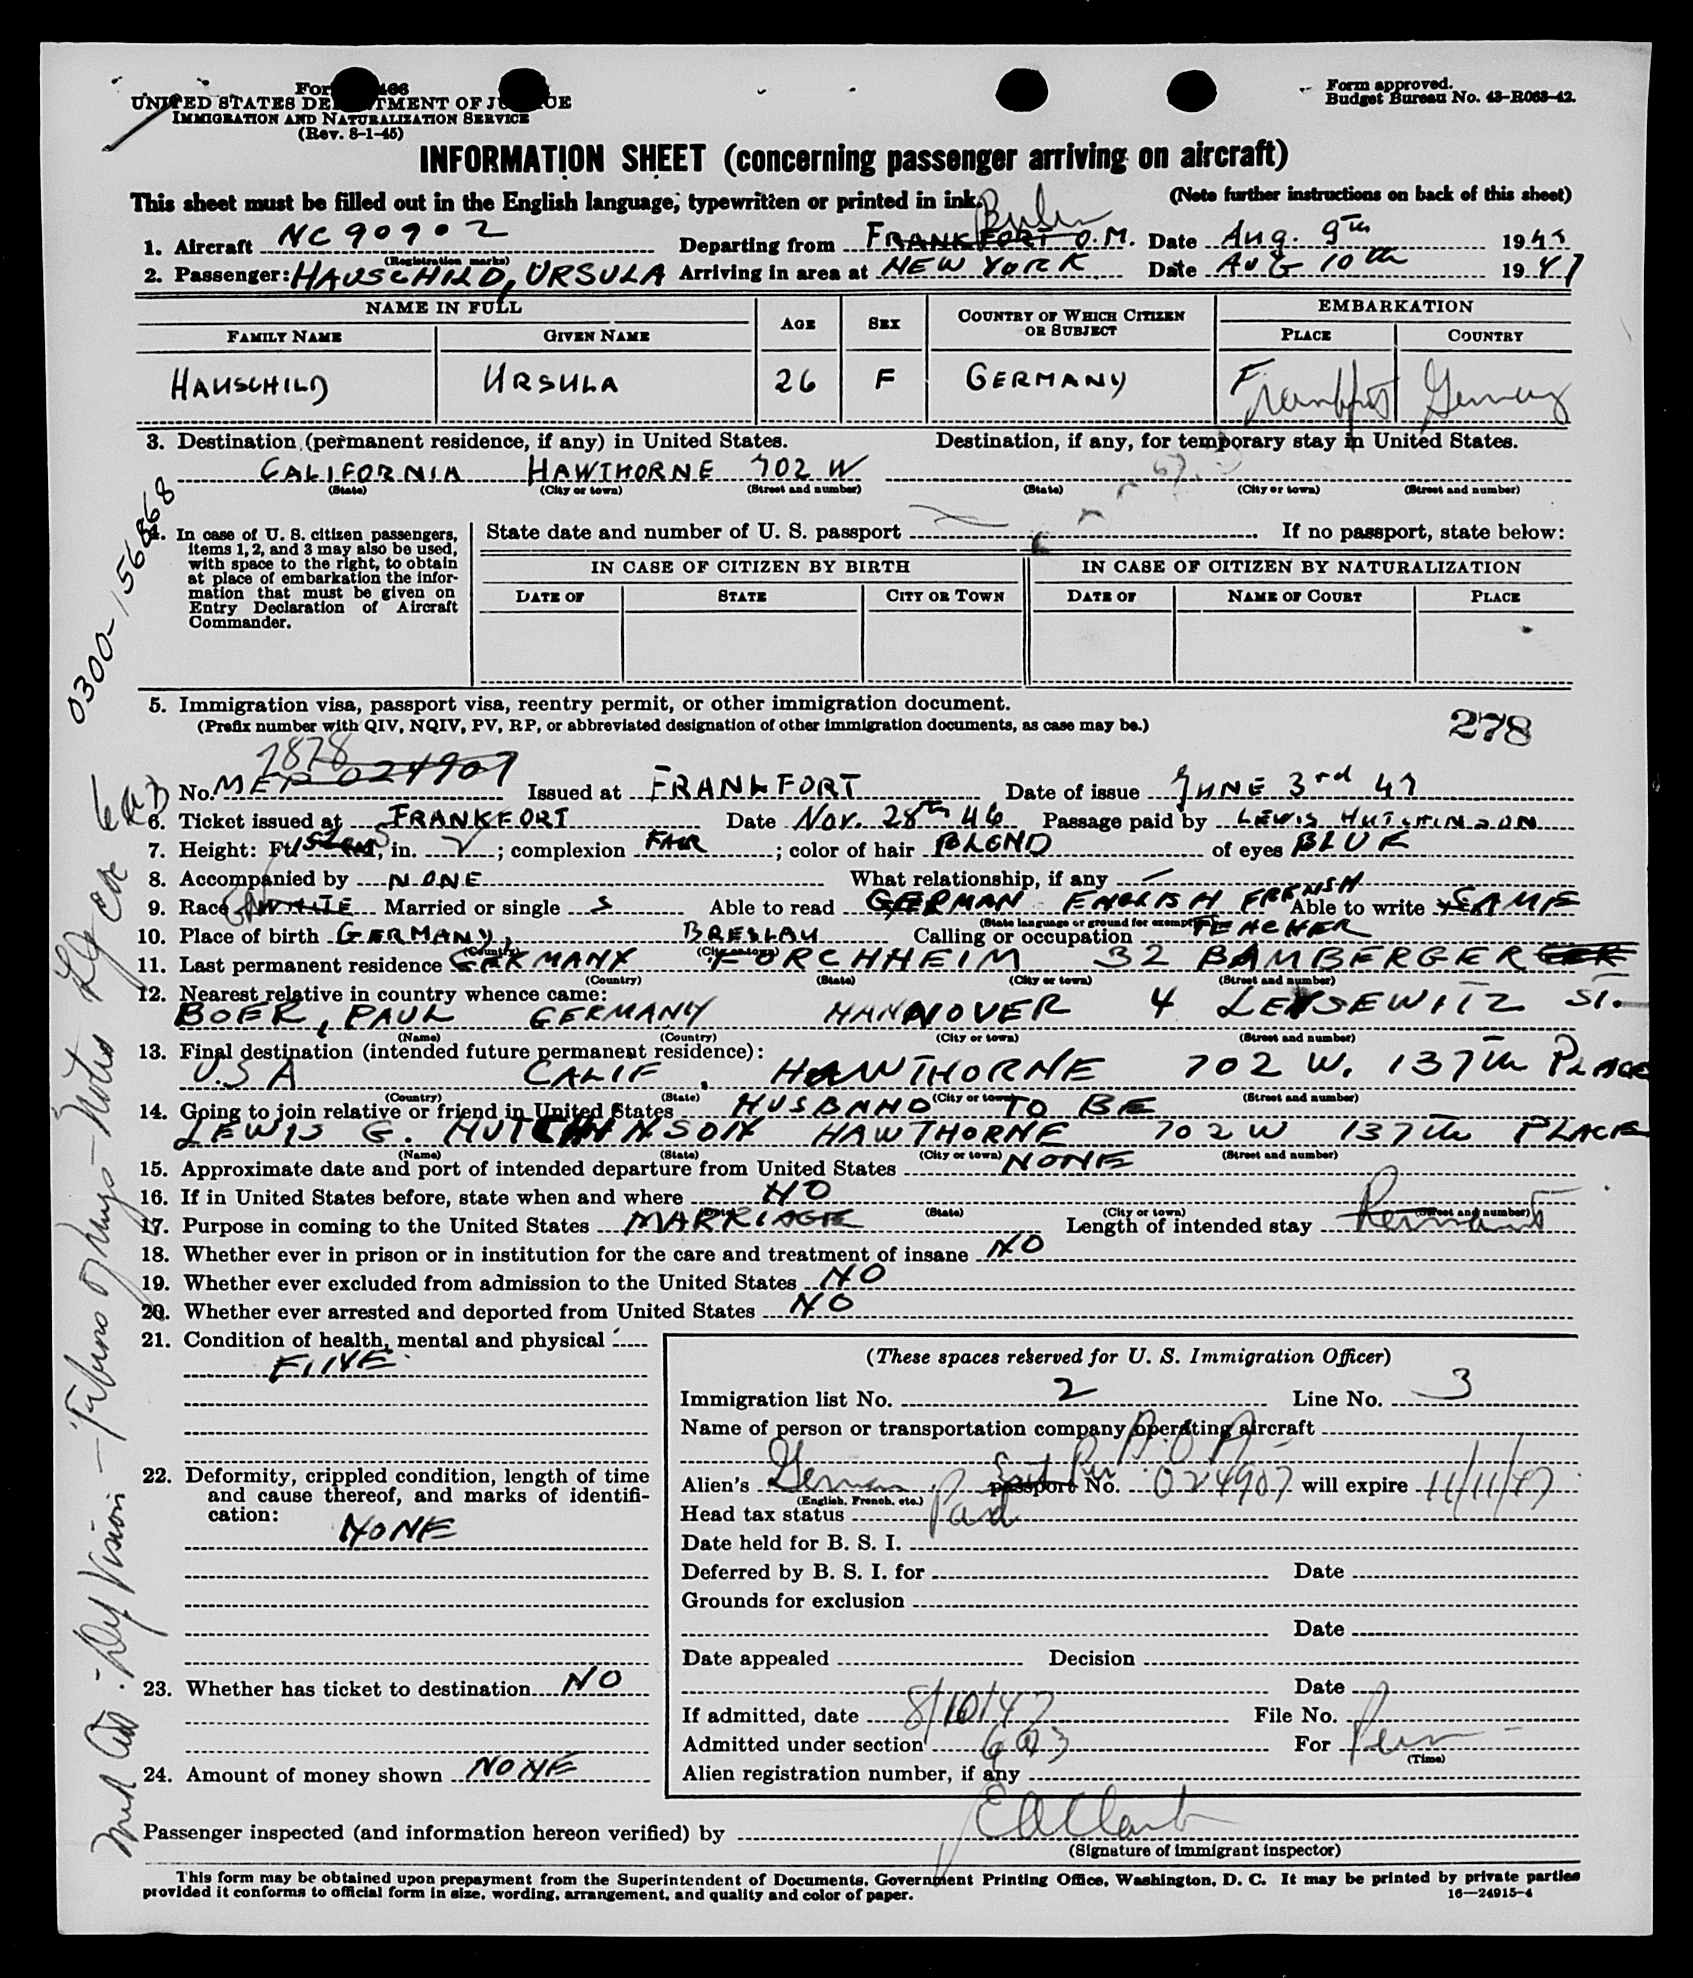 Form 466
UNITED STATES DEPARTMENT OF JUSTICE
IMMIGRATION AND NATURALIZATION SERVICE
(Rev. 8-1-45)
Form approved.
Budget Bureau No. 43-R063-42.
INFORMATION SHEET (concerning passenger arriving on aircraft)
This sheet must be filled out in the English language, typewritten or printed in ink. (Note further instructions on back of this sheet)
1. Aircraft NC 90902 Departing from FRANKFORT O.M. Date Aug. 9th 1947
(Registration marks)
2. Passenger: HAUSCHILD, URSULA Arriving in area at NEW YORK Date AUG 10th 1947
NAME IN FULL AGE SEX COUNTRY OF WHICH CITIZEN OR SUBJECT EMBARKATION
FAMILY NAME GIVEN NAME PLACE COUNTRY
HAUSCHILD URSULA 26 F GERMANY Frankfort Germany
3. Destination (permanent residence, if any) in United States. Destination, if any, for temporary stay in United States.
CALIFORNIA HAWTHORNE 702 W
(State) (City or town) (Street and number) (State) (City or town) (Street and number)
4. In case of U. S. citizen passengers, items 1, 2, and 3 may also be used, with space to the right, to obtain at place of embarkation the information that must be given on Entry Declaration of Aircraft Commander.
State date and number of U. S. passport If no passport, state below:
IN CASE OF CITIZEN BY BIRTH IN CASE OF CITIZEN BY NATURALIZATION
DATE OF STATE CITY OR TOWN DATE OF NAME OF COURT PLACE
0300-156868
5. Immigration visa, passport visa, reentry permit, or other immigration document.
(Prefix number with QIV, NQIV, PV, RP, or abbreviated designation of other immigration documents, as case may be.)
278
7878
No. MEP 024907 Issued at FRANKFORT Date of issue JUNE 3rd 47
6. Ticket issued at FRANKFORT Date Nov. 28th 46 Passage paid by LEWIS HUTCHINSON
7. Height: Ft. 5 in. ; complexion FAIR ; color of hair BLOND of eyes BLUE
8. Accompanied by NONE What relationship, if any —
9. Race WHITE Married or single S Able to read GERMAN ENGLISH FRENSH Able to write SAME
(State language or ground for exemption)
10. Place of birth GERMANY, BRESLAU Calling or occupation TEACHER
(Country) (City or town)
11. Last permanent residence GERMANY FORCHHEIM 32 BAMBERGER
(Country) (State) (City or town) (Street and number)
12. Nearest relative in country whence came:
BOER, PAUL GERMANY HANNOVER 4 LEISEWITZ ST.
(Name) (Country) (City or town) (Street and number)
13. Final destination (intended future permanent residence):
U.S.A CALIF. HAWTHORNE 702 W. 137th PLACE
(Country) (State) (City or town) (Street and number)
14. Going to join relative or friend in United States HUSBAND TO BE
LEWIS G. HUTCHINSON HAWTHORNE 702 W 137th PLACE
(Name) (State) (City or town) (Street and number)
15. Approximate date and port of intended departure from United States NONE
16. If in United States before, state when and where NO
(State) (City or town) (Street and number)
17. Purpose in coming to the United States MARRIAGE Length of intended stay Permanent
18. Whether ever in prison or in institution for the care and treatment of insane NO
19. Whether ever excluded from admission to the United States NO
20. Whether ever arrested and deported from United States NO
21. Condition of health, mental and physical
FINE
22. Deformity, crippled condition, length of time and cause thereof, and marks of identification:
NONE
23. Whether has ticket to destination NO
24. Amount of money shown NONE
(These spaces reserved for U. S. Immigration Officer)
Immigration list No. 2 Line No. 3
Name of person or transportation company operating aircraft A.O.A.
Alien's German passport Exit Per No. 024907 will expire 11/11/47
(English, French, etc.)
Head tax status Paid
Date held for B. S. I.
Deferred by B. S. I. for Date
Grounds for exclusion
Date
Date appealed Decision
Date
If admitted, date 8/10/47 File No.
Admitted under section 6a3 For Perm
(Time)
Alien registration number, if any
Passenger inspected (and information hereon verified) by E A Clark
(Signature of immigrant inspector)
This form may be obtained upon prepayment from the Superintendent of Documents, Government Printing Office, Washington, D. C. It may be printed by private parties
provided it conforms to official form in size, wording, arrangement, and quality and color of paper. 16—24915-4